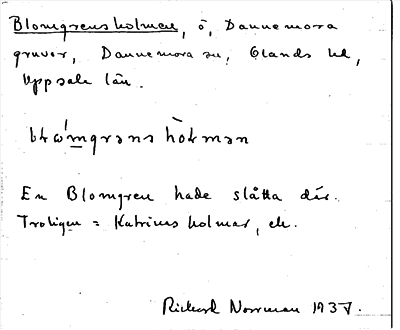 Blomgrensholmen, ö, Dannemora
gruvor, Dannemora sn, Olands hd,
Uppsala län.
En Blomgren hade slåtta där.
Troligen = Katrinesholmar, ek.
Rickard Norrman 1937.